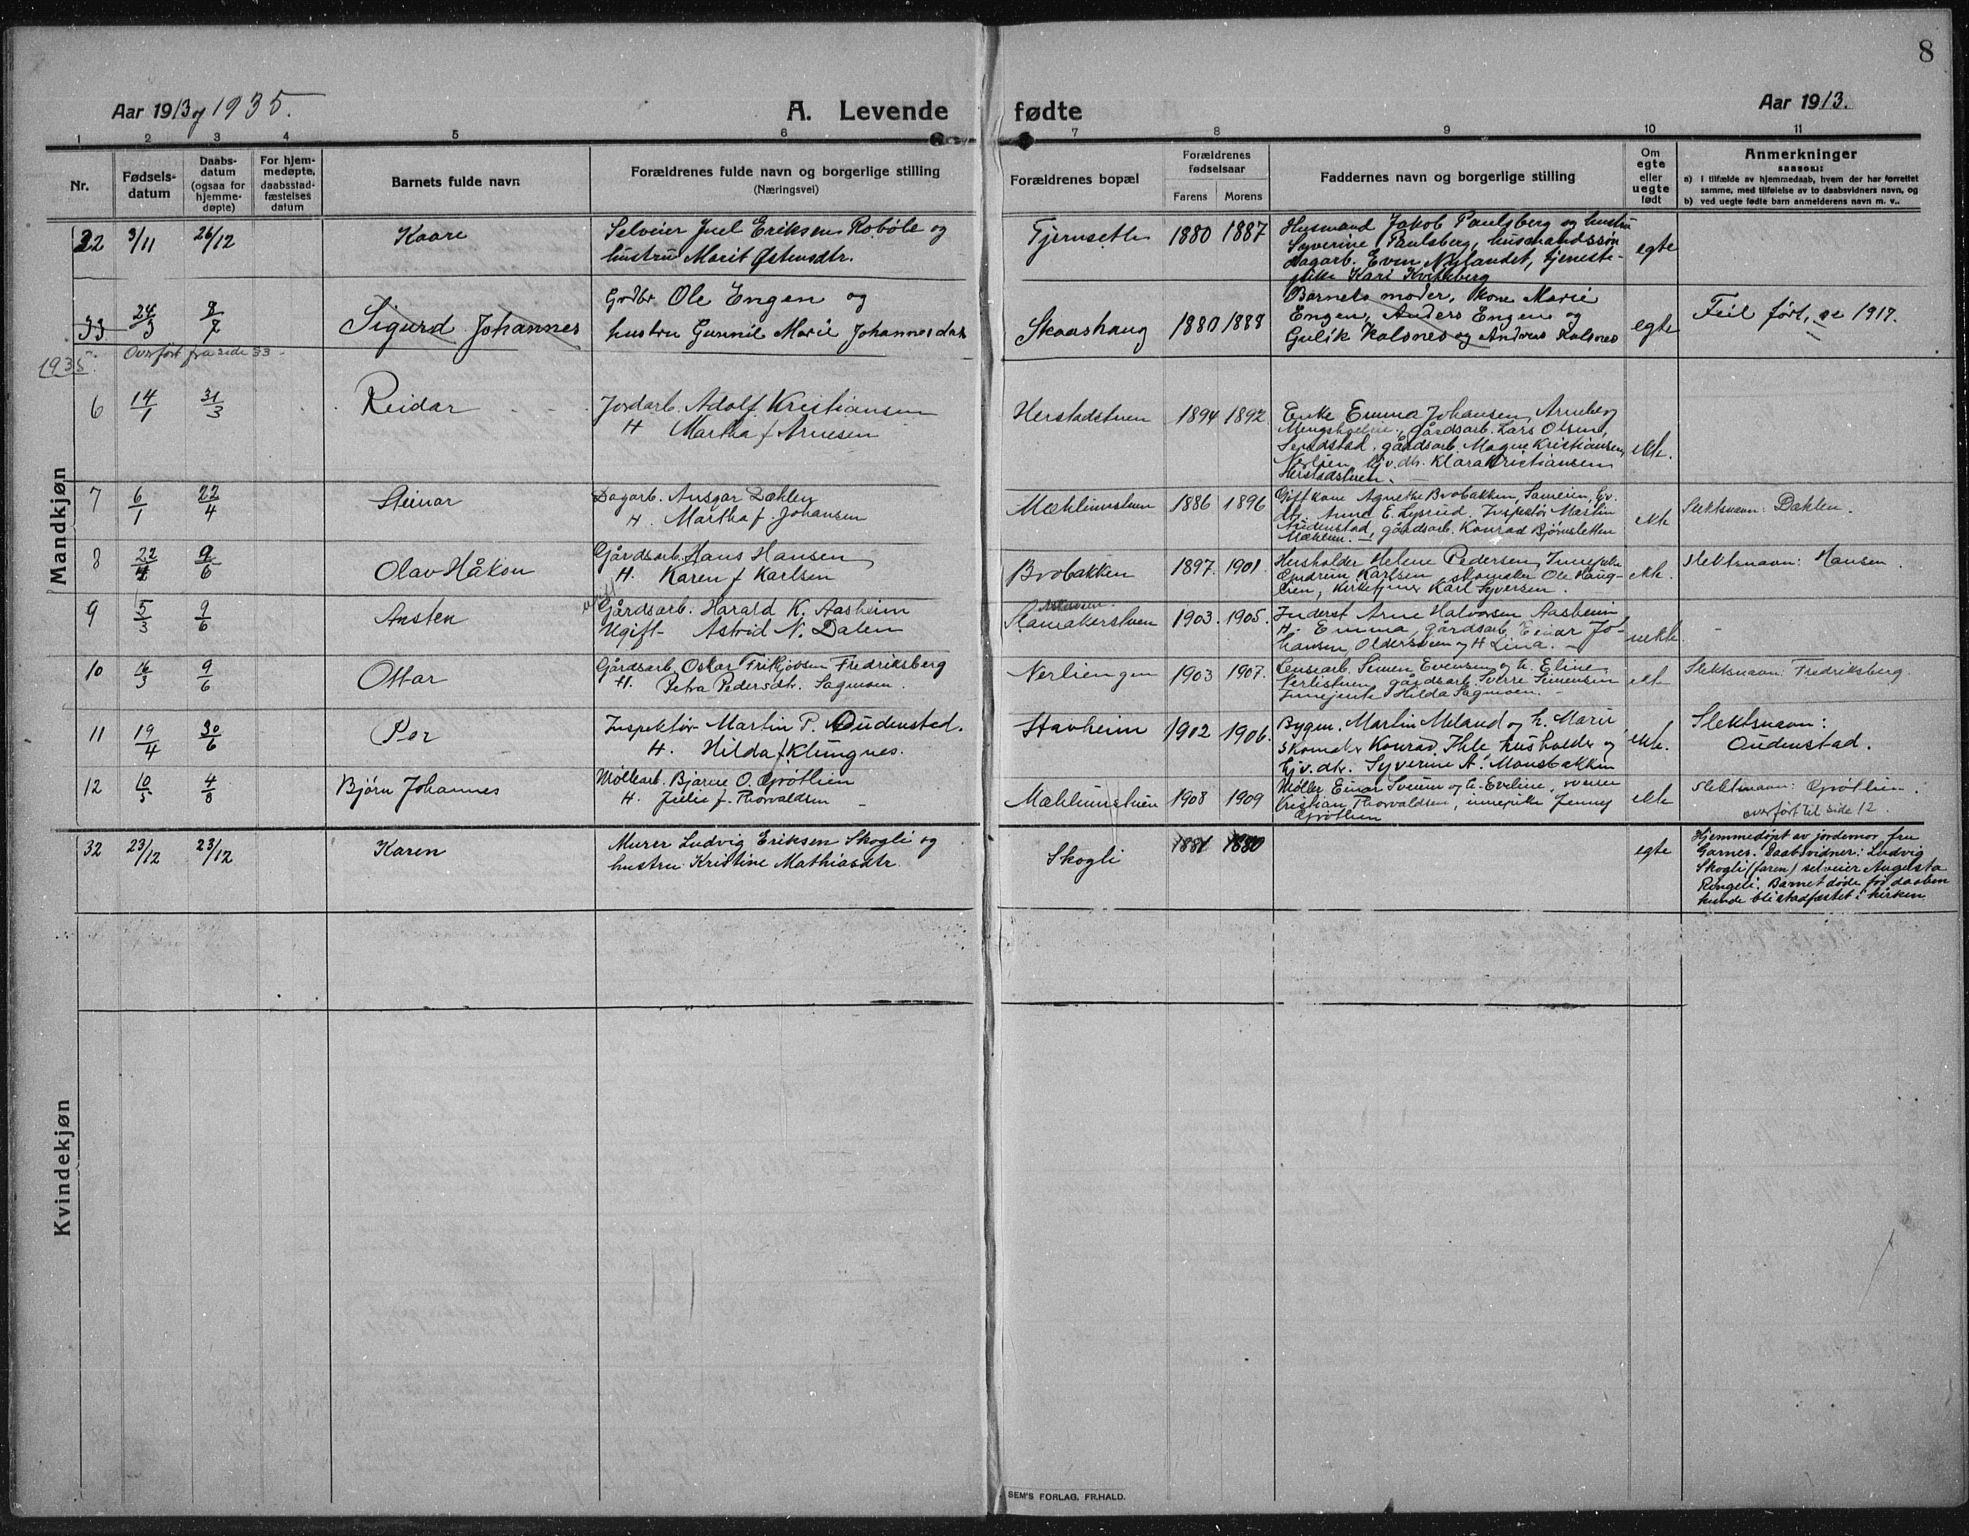 8
Aar 1913 og 1935.
A. Levende fødte
Aar 1913.
1 2 3 4 5 6 7 8 9 10 11
Nr.
Fødsels-
datum
Daabs-
datum
(ogsaa for
hjemme-
døpte)
For hjem-
medøpte,
daabsstad-
fæstelses
datum
Barnets fulde navn
Forældrenes fulde navn og borgerlige stilling
(Næringsvei)
Forældrenes bopæl
Forældrenes
fødselsaar
Farens Morens
Faddernes navn og borgerlige stilling
Om
egte
eller
uegte
født
Anmerkninger
saasom:
a) I tilfælde av hjemmedaab, hvem der har forrettet
samme, med tilføielse av to daabsvidners navn, og
b) ved uegte fødte barn anmelderens navn m. v..
Mandkjøn
32 3/11 26/12 Kaare
Selveier Juel Eriksen Robøle og
hustru Marit Østensdtr.
Tjernsette 1880 1887
Husmand Jakob Paulsberg og hustru
Syverine Paulsberg, husmandssøn
dagarb. Even Nylandet, tjeneste-
pike Kari Kvitsberg
egte
33 24/3 9/7 Sigurd Johannes
Grdbr. Ole Engen og
hustru Gunnil Marie Johannesdatr
Skaashaug 1880 1888
Barnets moder, Kone Marie
Engen, Anders Engen og
Gulik Kolsnes og Andreas Kolsnes
egte
Feil ført, se 1917.
1935. Overført fra side 33
6 14/1 31/3 Reidar
Jordarb. Adolf Kristiansen
H Martha f Arnesen
Herstadstuen 1894 1892
Enke Emma Johansen, Arneberg
gårdsarb. Lars Olsen,
gårdsarb. Magne Kristiansen,
Gjv. dtr. Klara Kristiansen
Herstadstuen.
ekte.
7 6/1 22/4 Steinar
Dagarb. Ansgar Dæhlen
H. Martha f. Johansen
Mæhlumstuen 1886 1896
Gift kone Agnethe Brobakken, Gv.
dtr. Anne E. Lysrud, Inspektør Martin
Audenstad, gårdsarb. Konrad Bjørnsletten
Mæhlum.
ekte
Slektsnavn: Dahlen.
8 22/4 9/6 Olav Håkon
Gårdsarb. Hans Hansen
H. Karen f Karlsen
Brobakken 1897. 1901.
Husholder Helene Pedersen, Innepike
Gudrun Karlsen, skomaker Ole Haug-
en, kirketjener Karl Syversen.
ekte.
Slektsnavn: Hansen.
9 5/3 9/6 Austen
Gårdsarb. Harald K. Aasheim
Ugift Astrid N. Dalen
Ramakerstuen 1903. 1905.
Inderst Arne Halvorsen Aasheim
H. Emma, gårdsarb Einar Jo-
hansen, Oldersveen og H Lina.
uekte
10 16/3 9/6 Ottar
Gårdsarb. Oskar Fritjofsen Fredriksberg
H. Petra Pedersdtr. Sagmoen.
Nerliengen 1903 1907.
Simen Evensen og h. Eline
gårdsarb Sverre Simensen
Innejente Hilda Sagmoen.
ekte
Slektsnavn: Fredriksberg.
11 19/4 30/6 Per
Inspektør Martin P. Oudenstad.
H. Hilda f Klungnes.
Stavheim 1902 1906.
Bygm. Martin Meland og h. Marie
Skomaker Konrad Ihle, husholder og
Gv. dtr. Syverine A. Monsbakken
ekte.
Slektsnavn:
Oudenstad.
12 10/5 4/8 Bjørn Johannes
Møllearb. Bjarne O. Grøtlien
H. Julie f. Thorvaldsen
Mæhlumstuen 1908 1909
Møller Einar Sveum og h. Eveline,
Kristian Thorvaldsen, innepike Jenny
Grøtlien
ekte
Slektsnavn: Grøtlien.
overført til side 12.
Kvindekjøn
32 23/12 23/12 Karen
Murer Ludvig Eriksen Skogli og
hustru Kristine Mathiasdtr.
Skogli 1881 1880
egte
Hjemmedøpt av jordemor, fru
Garnes. Daabsvidner: Ludvig
Skogli (faren) selveier Augusta
Ringeli. Barnet døde før daaben
kunde bli stadfæstet i kirken
SEM'S FORLAG. FR.HALD.